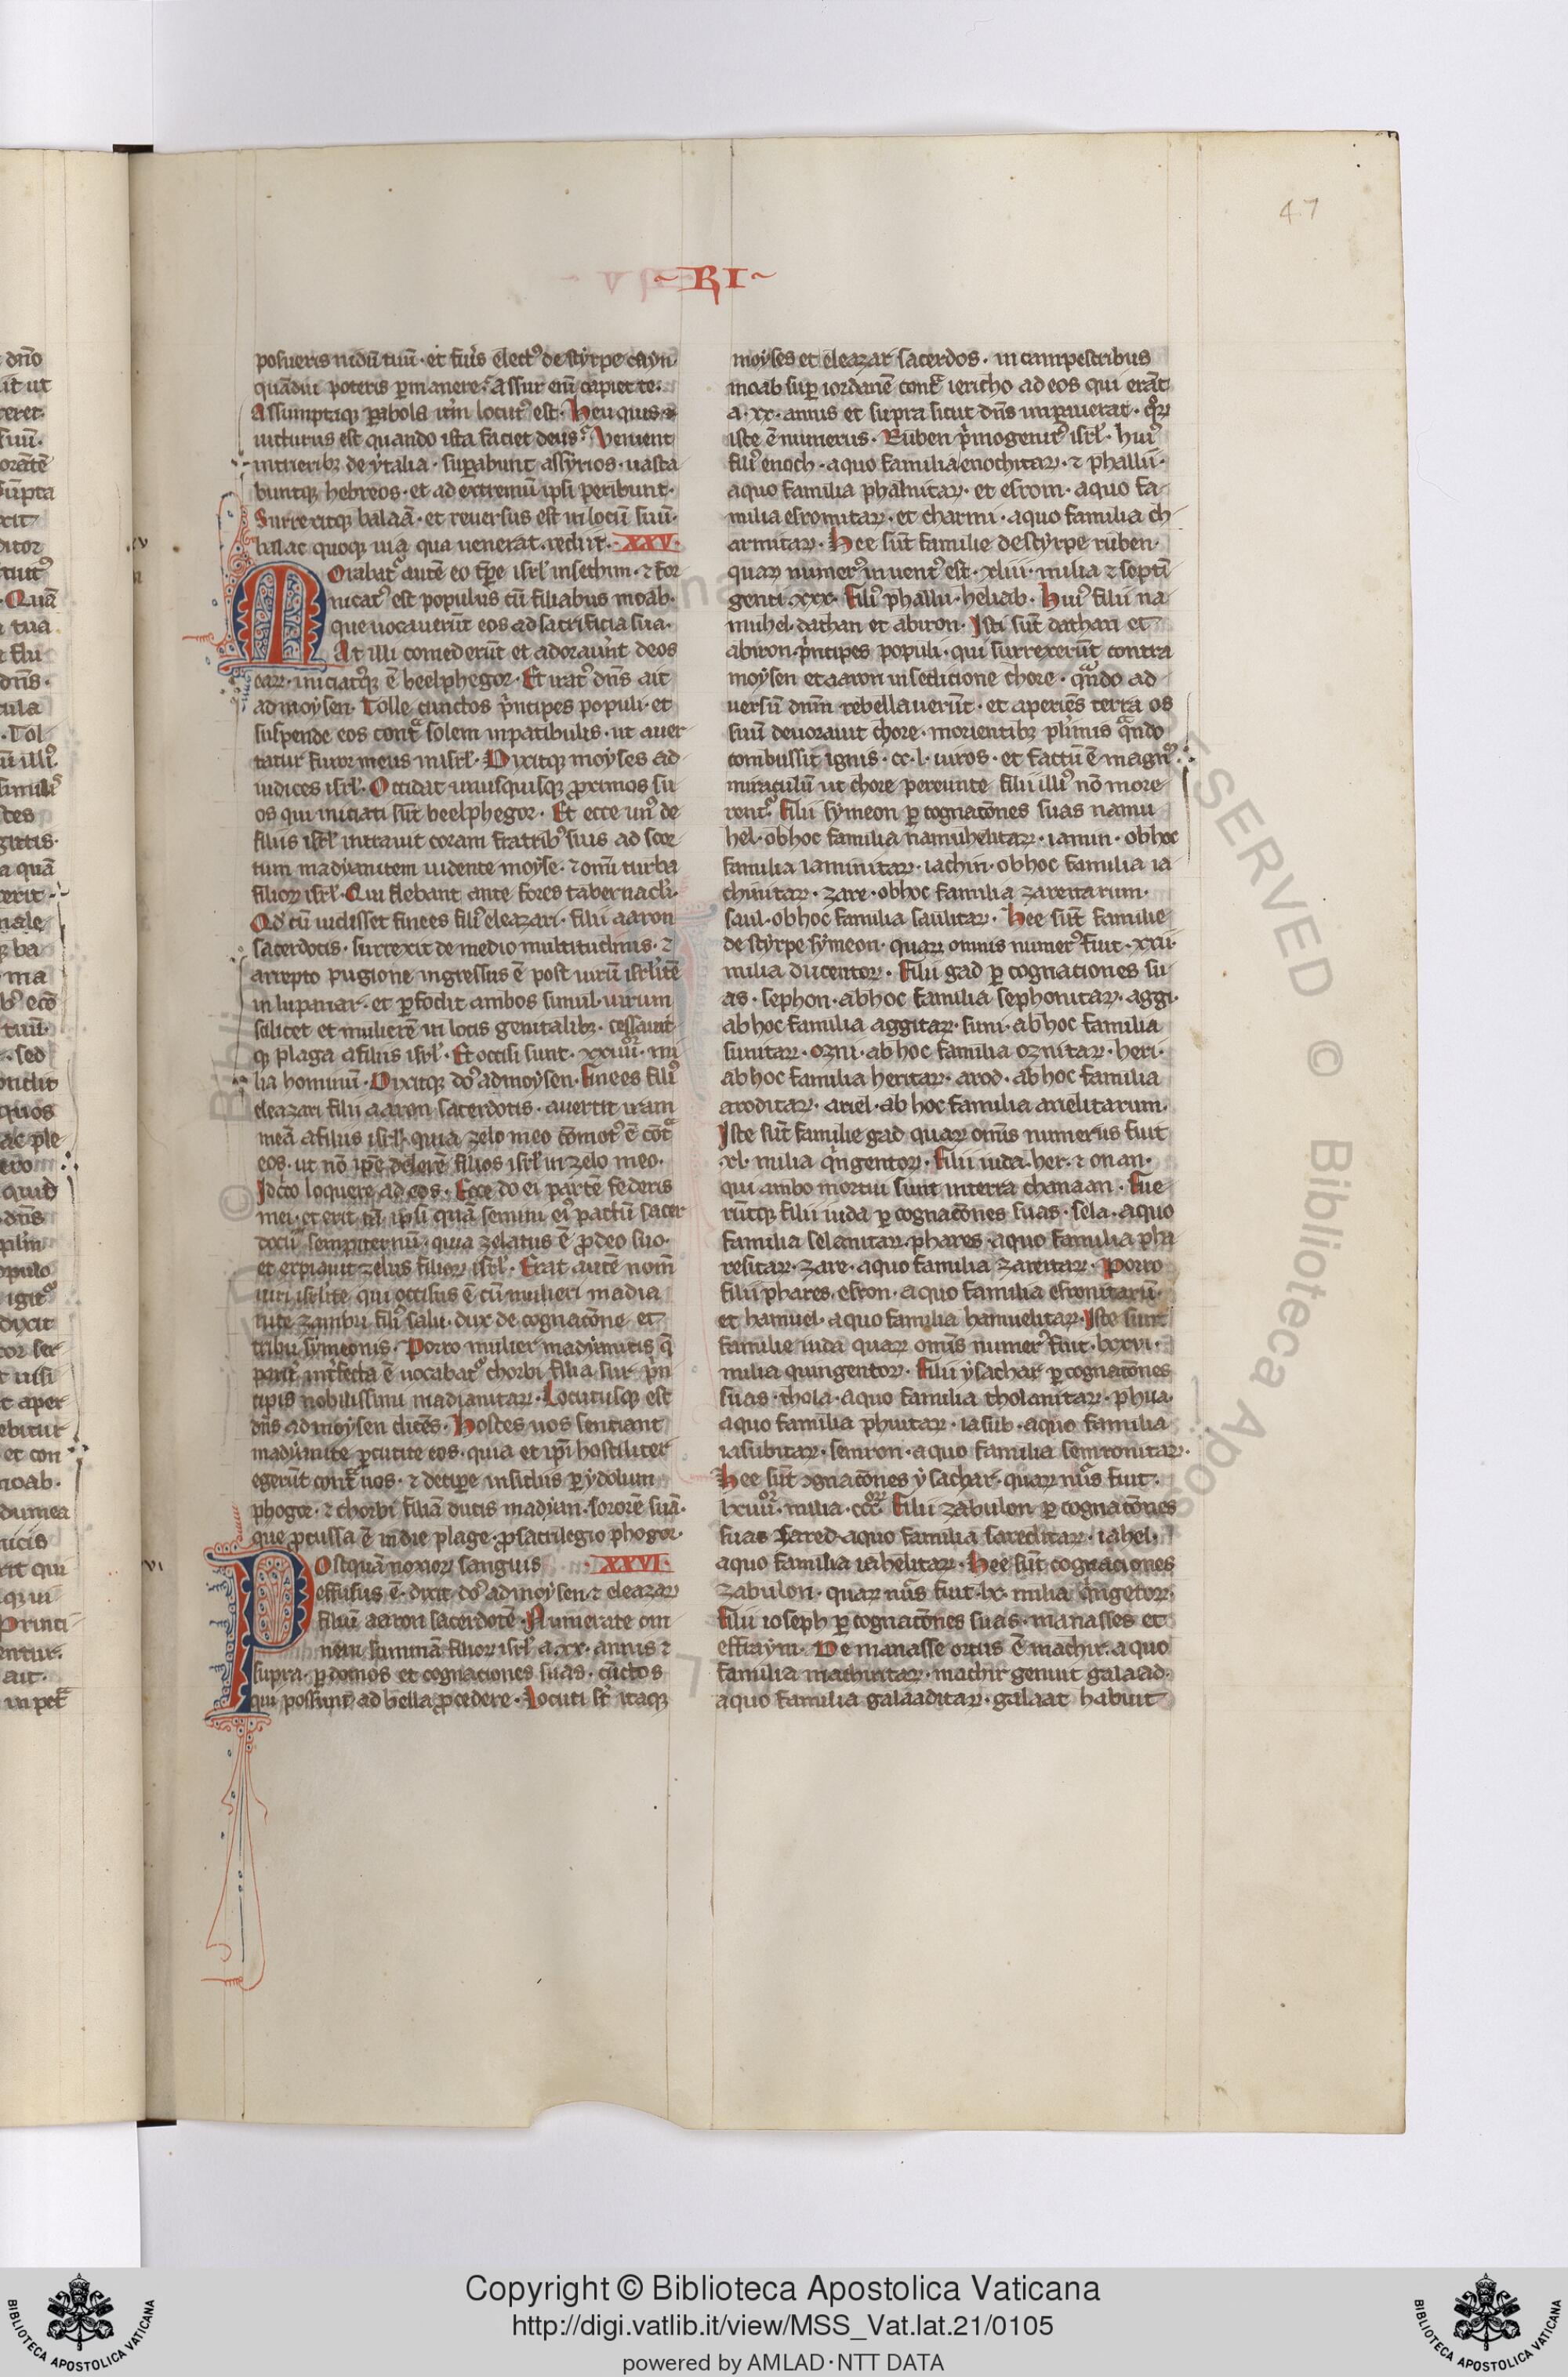 47
RI
posueris nidū tuū · et fuīs elect⁹ de styrpe cayn
quādiu poteris ꝑmanere · assur eni᷒ capiet te ·
Assumptaqꝫ ꝑabola itīm locut⁹ est · Heu quis
uicturus est quando ista faciet deus · Venient
intrieribꝫ de ytalia · suꝑabunt assyrios · uasta
buntqꝫ hebreos · et ad extremū ipsi peribunt ·
Surrexitqꝫ balaā · et reuersus est in locū suū ·
balac quoqꝫ uia qua uenerat rediit · XXV ·
Morabat᷒ autē eo tꝑe isrl᷒ in sethim · ⁊ for
nicat⁹ est populus cū filiabus moab ·
que uocauerūt eos ad sacrificia sua ·
At illi comederūt et adoraūnt deos
earꝝ · iniciat⁹qꝫ ē beelphegor · Et irat⁹ dn̄s ait
ad moysen · Tolle cunctos p̄ncipes populi · et
suspende eos contᷓ solem in patibulis · ut auer
tatur furor meus misrl᷒ · Dixitqꝫ moyses ad
iudices isrl᷒ · Occidat unusquisqꝫ ꝓximos su
os qui iniciati sūt beelphegor · Et ecce un⁹ de
filiis isrl᷒ intrauit coram fratrib⁹ suis ad scor
tum madyanitem uidente moyse · ⁊ omi᷒ turba
filiorꝝ isrl᷒ · Qui flebant ante fores tabernacli᷒ ·
Qd᷒ cū uidisset finees fili⁹ eleazari · filii aaron
sacerdotis · surrexit de medio multitudinis · ⁊
arrepto pugione ingressus ē post uirū isrl᷒itē
in lupanar · et ꝑfodit ambos simul · uirum
scilicet et mulierē in locis genitalibꝫ · cessauit
qꝫ plaga a filiis isrl᷒ · Et occisi sunt · xxiiii᷒ · mi
lia hominū · Dixitqꝫ do⁹ ad moysen · finees fili⁹
eleazari filii aaron sacerdotis · auertit iram
meā a filiis isrl᷒ · quia zelo meo cōmot⁹ ē cōtᷓ
eos · ut nō ip̄e delerē filios isrl᷒ in zelo meo ·
Idcͦo loquere ad eos · Ecce do ei partē federis
mei · et erit tā ipsi quā semini ei⁹ pactū sacer
docii᷒ sempiternū · quia zelatus ē ꝓ deo suo ·
et expiauit zelus filiorꝝ isrl᷒ · Erat autē nom̄
uiri isrl᷒ite qui occisus ē cū muliere madia
nite zambri fili⁹ salu · dux de cognacōne et
tribu symeonis · Porro mulier madyanitis q̄
parit᷒ int᷒fecta ē uocabat᷒ chorbi filia sur p̄n
cipis nobilissimi madianitarꝝ · Locutusqꝫ est
dn̄s ad moysen dicēs · Hostes uos sentiant
madyanite ꝑcutite eos · quia et ip̄i hostiliter
egerūt contᷓ uos · ⁊ decipe insidiis ꝑ ydolum
phogor · ⁊ chorbi filiā ducis madyan · sororē suā ·
que ꝑcussa ē in die plage · ꝓ sacrilegio phogor ·
Postquā noxiorꝝ sanguis XXVI ·
effusus ē · dixit do⁹ ad moysen · ⁊ eleazarꝝ
filiū aaron sacerdotē · Numerate om
nem summā filiorꝝ isrl᷒ a · xx · annis ⁊
supra · ꝑ domos et cognaciones suas · cūctos
qui possunt ad bella ꝓcedere · Locuti st᷒ itaqꝫ
moyses et eleazar sacerdos · in campestribus
moab suꝑ iordanē contᷓ iericho ad eos qui erāt
a · xx · annis et supra sicut dn̄s imꝑauerat · qͦrꝝ
iste ē numerus · Ruben p̄mogenit⁹ isrl᷒ · hui⁹
fili⁹ enoch · a quo familia enochitarꝝ · ⁊ phallu ·
a quo familia phaluitarꝝ · et esrom · a quo fa
milia esromitarꝝ · et charmi · a quo familia ch
armitarꝝ · Hee sūt familie de styrpe ruben ·
quarꝝ numer⁹ inuent⁹ est · xliii · milia ⁊ septī
genti · xxx · Fili⁹ phallu · heliab · Hui⁹ filii na
muhel · dathan et abiron · Isti sūt dathan et
abiron p̄ncipes populi · qui surrexerūt contra
moysen et aaron in sedicione chore · qᷓndo ad
uersū dn̄m rebellauerūt · et aperiēs terra os
suū deuorauit chore · morientibꝫ pl᷒imis qᷓndo
combussit ignis · cc · l · uiros · et factū ē magn⁹
miraculū ut chore pereunte filii illi⁹ nō more
rent᷒ · Filii symeon ꝑ cognacōnes suas namu
hel · ob hoc familia namuhelitarꝝ · iamin · ob hoc
familia iaminitarꝝ · iachin · ob hoc familia ia
chinitarꝝ · zare · ob hoc familia zareitarum ·
saul · ob hoc familia saulitarꝝ · Hee sūt familie
de styrpe symeon · quarꝝ omnis numer⁹ fuit · xxii ·
milia ducentorꝝ · Filii gad ꝑ cognationes su
as · sephon · ab hoc familia sephonitarꝝ · aggi ·
ab hoc familia aggitarꝝ · suni · ab hoc familia
sunitarꝝ · ozni · ab hoc familia oznitarꝝ · heri ·
ab hoc familia heritarꝝ · arod · ab hoc familia
aroditarꝝ · ariel · ab hoc familia arielitarum ·
Iste sūt familie gad quarꝝ omīs numerus fuit
· xl · milia q᷒ngentorꝝ · Filii iuda · her · ⁊ onan ·
qui ambo mortui sunt in terra chanaan · Fue
rūtqꝫ filii iuda ꝑ cognacōnes suas · sela · a quo
familia selanitarꝝ · phares · a quo familia pha
resitarꝝ · zare · a quo familia zareitarꝝ · Porro
filii phares · esron · a quo familia esronitarū ·
et hamuel · a quo familia hamuelitarꝝ · Iste sunt
familie iuda quarꝝ omīs numer⁹ fuit · lxxvi ·
milia quingentorꝝ · Filii ysachar ꝑ cognacōnes
suas · thola · a quo familia tholanitarꝝ · phua ·
a quo familia phuitarꝝ · iasub · a quo familia
iasubitarꝝ · semron · a quo familia semronitarꝝ ·
Hee sūt ꝯgnacōnes ysachar · quarꝝ nu᷒s fuit ·
lxiiii᷒ · milia · ccc᷒ · Filii zabulon ꝑ cognacōnes
suas · Sared a quo familia sareditarꝝ · iahel ·
a quo familia iahelitarꝝ · Hee sūt cognaciones
zabulon · quarꝝ nūs fuit · lx · milia q᷒ngētorꝝ ·
Filii ioseph ꝑ cognacōnes suas · manasses et
effraym · De manasse ortus ē machir · a quo
familia machiritarꝝ · machir genuit galaad ·
a quo familia galaaditarꝝ · galaat habuit
Copyright © Biblioteca Apostolica Vaticana
http://digi.vatlib.it/view/MSS_Vat.lat.21/0105
powered by AMLAD · NTT DATA
BIBLIOTECA APOSTOLICA VATICANA
BIBLIOTECA APOSTOLICA VATICANA